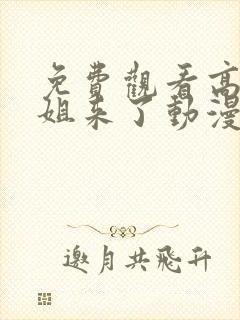 免費觀看高
姐来了動漫
邀月共飛升